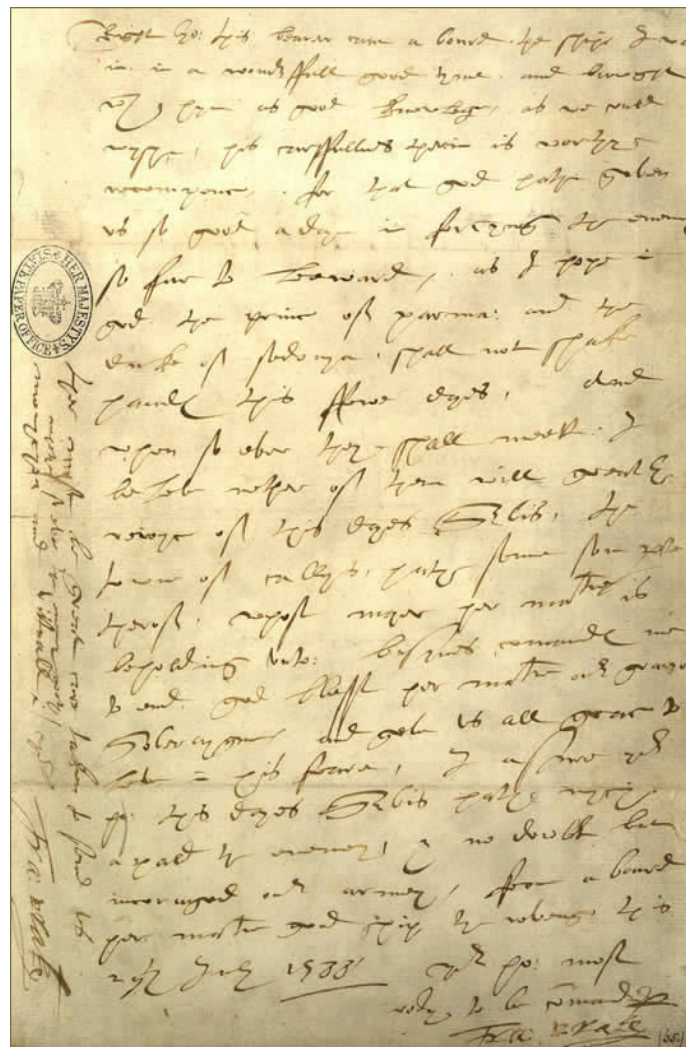 Right Ho: this bearer cam a board the ship I was
in in a wonderffull good tyme and browght
wth hym as good knowlege as we culd
wyshe, his carffullnes therin is worthye
recompence, for that god hathe geven
us so good a daye in forcyng the enemy
so far to leeward, as I hope in
god the prince of parma and the
duke of sedonya shall not shake
hands this ffewe dayes, And
when so ever they shall meet I
beleve nether of them will greatly
reioyce of this dayes Servis, the
towne of callys hathe seene som parte
therof, whose mayer her matie is
beholding unto: busynes comands me
to end. god blesse her matie our gracyous
Soveraygne and geve us all grace to
leve in his feare, I assure your
ho: this dayes Servis hathe mych
apald the enemy, & no dowbt but
incoraged our armey, ffrom a board
her maties good ship the reveng this
29th July 1588
your ho: most
redy to be comanded
Fra: Drake
ther must be great care taken to send us
monycyon and vittuall
Fra: Drake
HER MAJESTYS STATE PAPER OFFICE